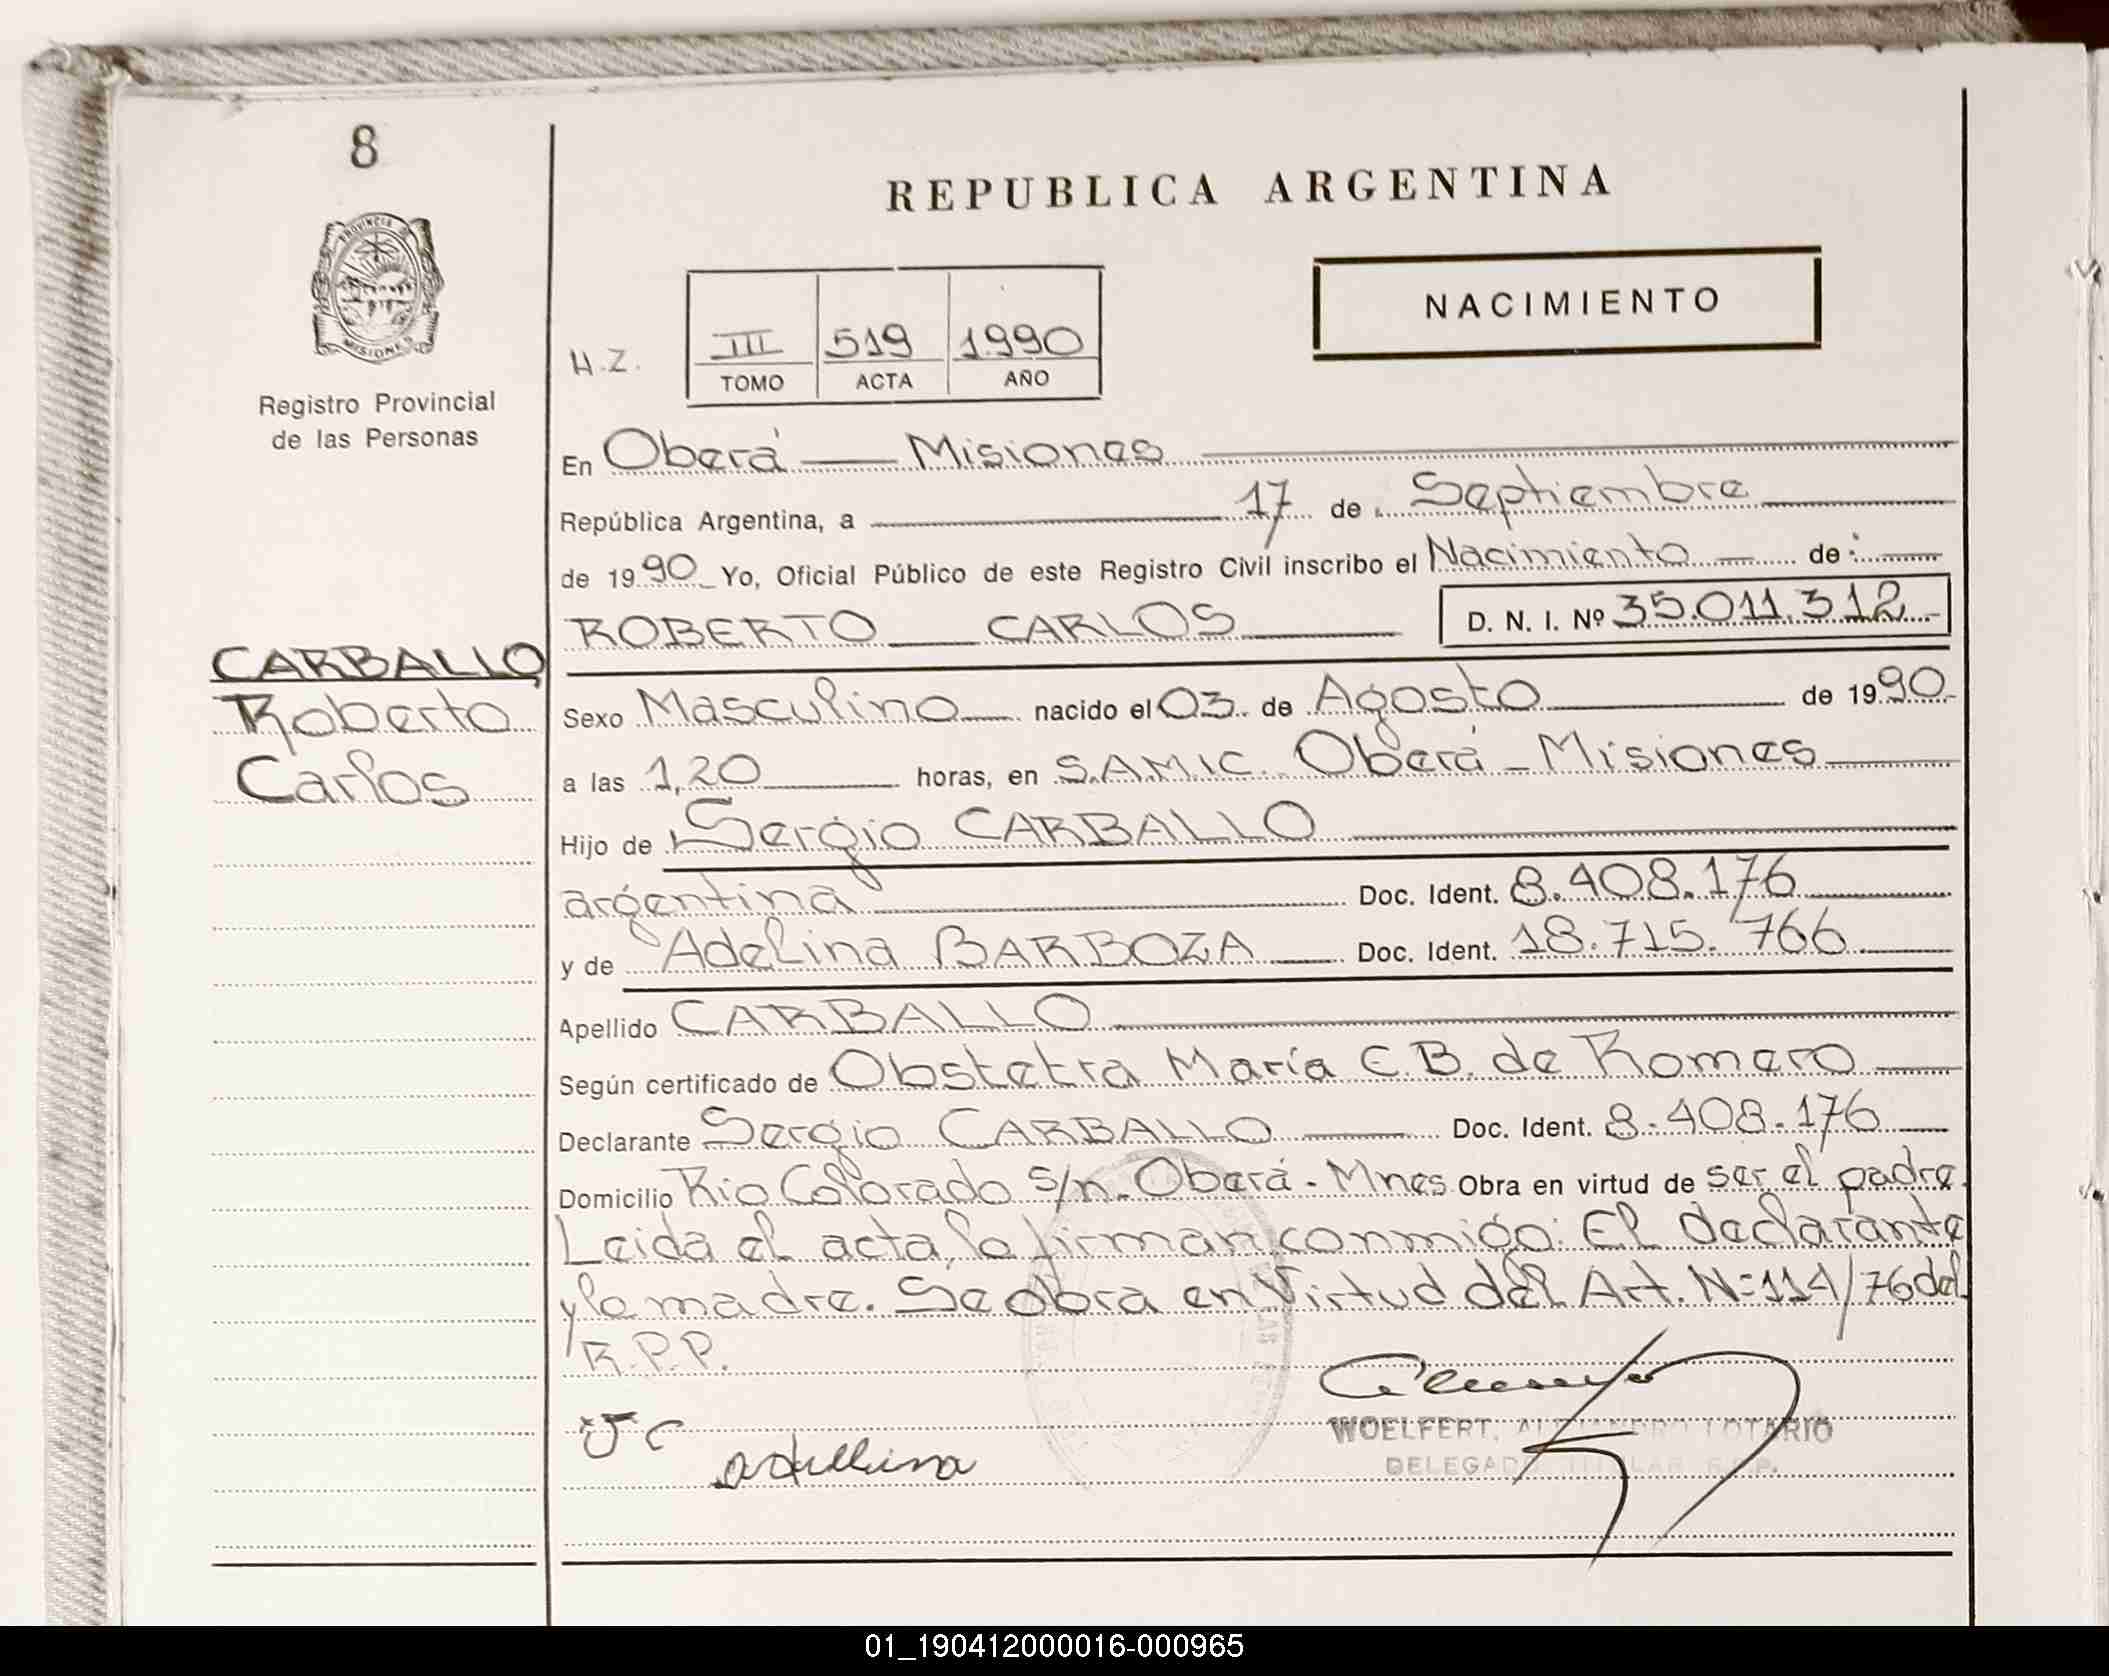 8
REPUBLICA ARGENTINA
PROVINCIA DE
MISIONES
NACIMIENTO
H.Z.
III 519 1990
TOMO ACTA AÑO
Registro Provincial
de las Personas
En Oberá Misiones
República Argentina, a 17 de Septiembre
de 1990 Yo, Oficial Público de este Registro Civil inscribo el Nacimiento de:
ROBERTO CARLOS D. N. I. Nº 35.011.312
CARBALLO
Roberto
Carlos
Sexo Masculino nacido el 03 de Agosto de 1990
a las 1,20 horas, en S.A.M.I.C. Oberá - Misiones
Hijo de Sergio CARBALLO
argentina Doc. Ident. 8.408.176
y de Adelina BARBOZA Doc. Ident. 18.715.766
Apellido CARBALLO
Según certificado de Obstetra María C.B. de Romero
Declarante Sergio CARBALLO Doc. Ident. 8.408.176
Domicilio Rio Colorado s/n. Oberá - Mnes Obra en virtud de ser el padre.
Leida el acta, la firman conmigo: El declarante
y la madre. Se obra en Virtud del Art. N:114/76 del
R.P.P.
WOELFERT, ALEJANDRO LOTARIO
DELEGADO TITULAR R.P.P.
adellina
01_190412000016-000965